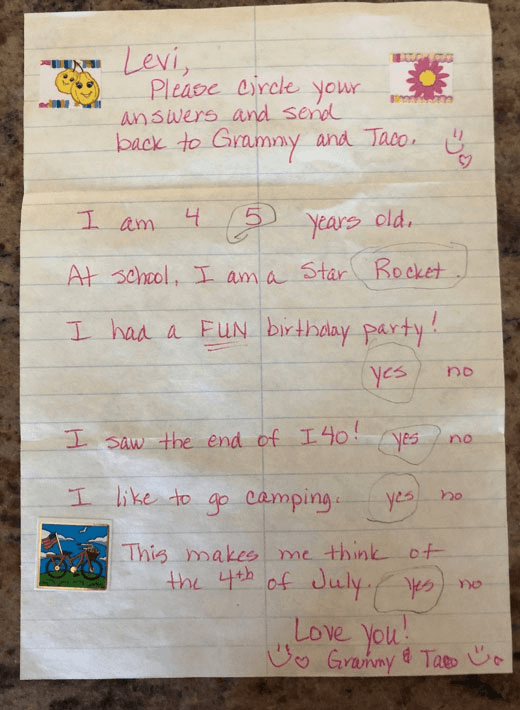 Levi,
Please circle your
answers and send
back to Grammy and Taco.
I am 4 5 years old.
At school, I am a Star Rocket.
I had a FUN birthday party!
yes no
I saw the end of I40! yes no
I like to go camping. yes no
This makes me think of
the 4th of July. yes no
Love you!
Grammy & Taco